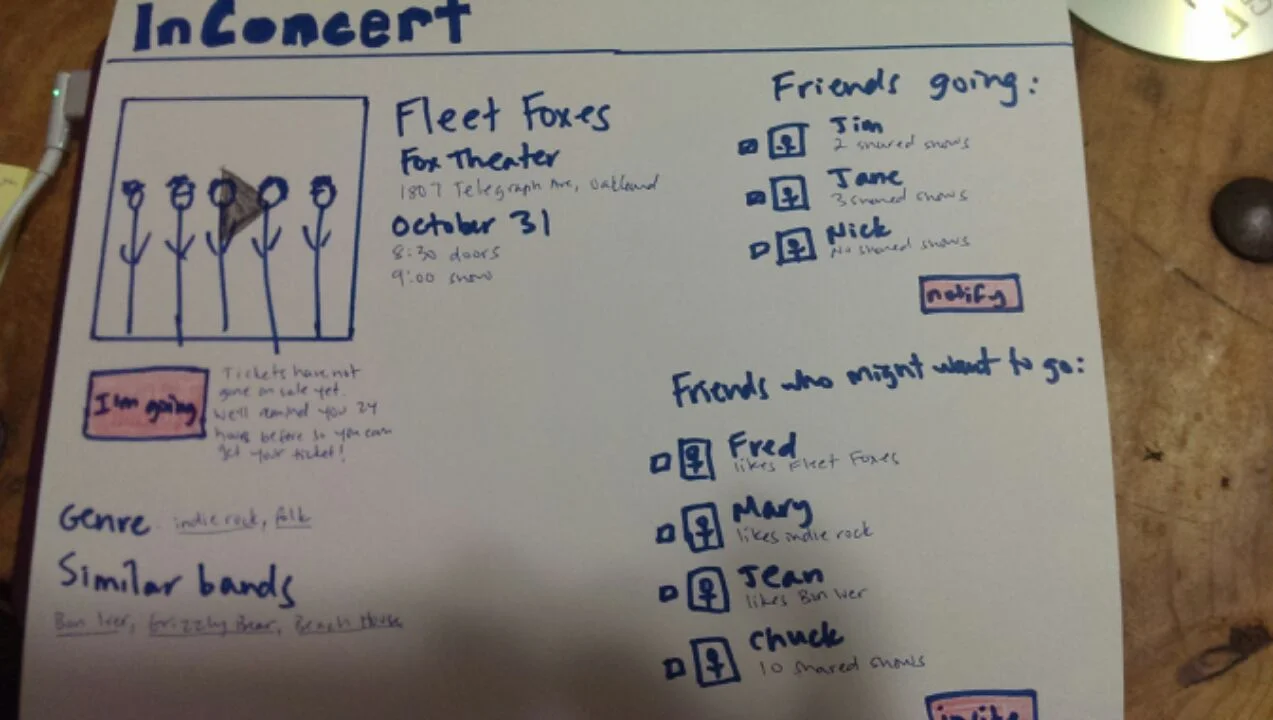 InConcert
Fleet Foxes
Fox Theater
1807 Telegraph Ave, Oakland
October 31
8:30 doors
9:00 show
I'm going
Tickets have not
gone on sale yet.
We'll remind you 24
hours before so you can
get your ticket!
Genre indie rock, folk
Similar bands
Bon Iver, Grizzly Bear, Beach House
Friends going:
Jim
2 shared shows
Jane
3 shared shows
Nick
No shared shows
notify
Friends who might want to go:
Fred
likes Fleet Foxes
Mary
likes indie rock
Jean
likes Bon Iver
Chuck
10 shared shows
invite